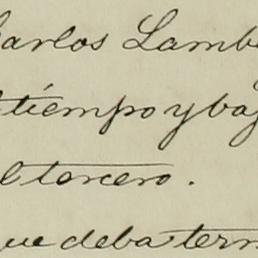 Carlos Lamb
tiempo y baj
el tercero.
que deba tern